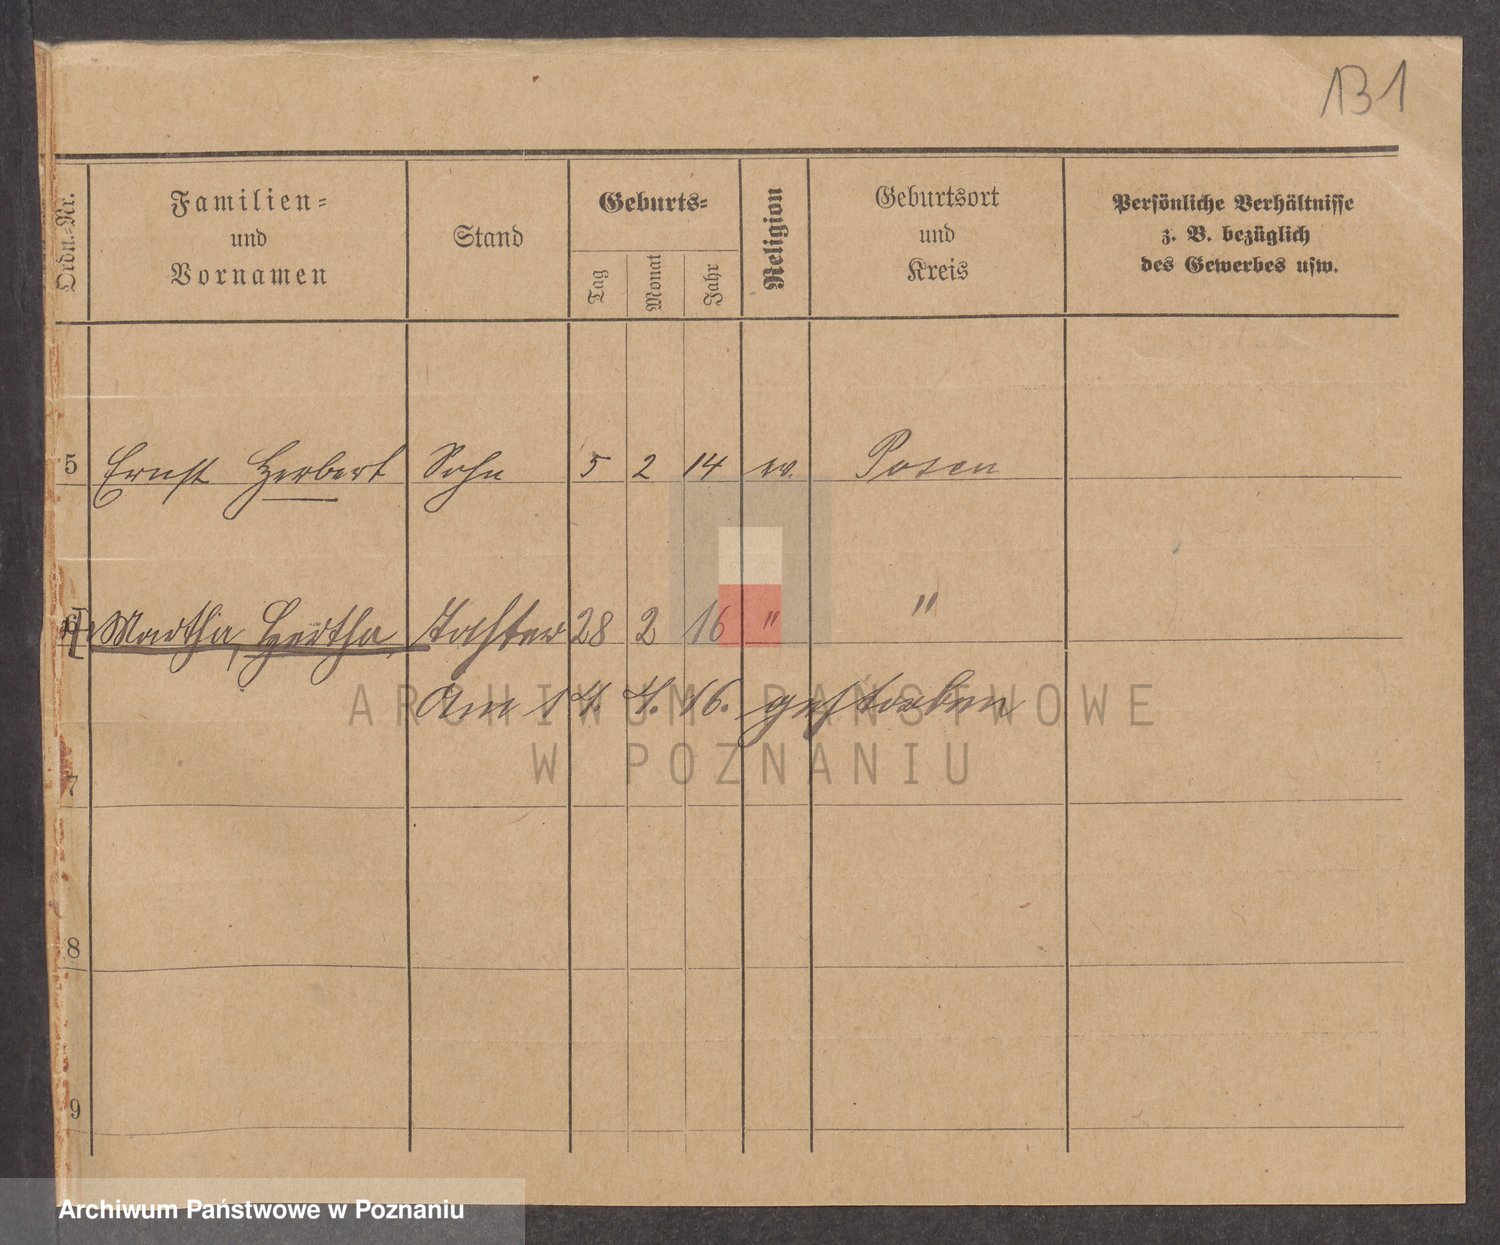 131
Ordn.-Nr.
Familien-
und
Vornamen
Stand
Geburts-
Tag
Monat
Jahr
Religion
Geburtsort
und
Kreis
Persönliche Verhältnisse
z. B. bezüglich
des Gewerbes usw.
5 Ernst Herbert Sohn 5 2 14 ev. Posen
6 Martha, Hertha, Tochter 28 2 16 " "
Am 14. 4. 16. gestorben
7
8
9
ARCHIWUM PAŃSTWOWE
W POZNANIU
Archiwum Państwowe w Poznaniu